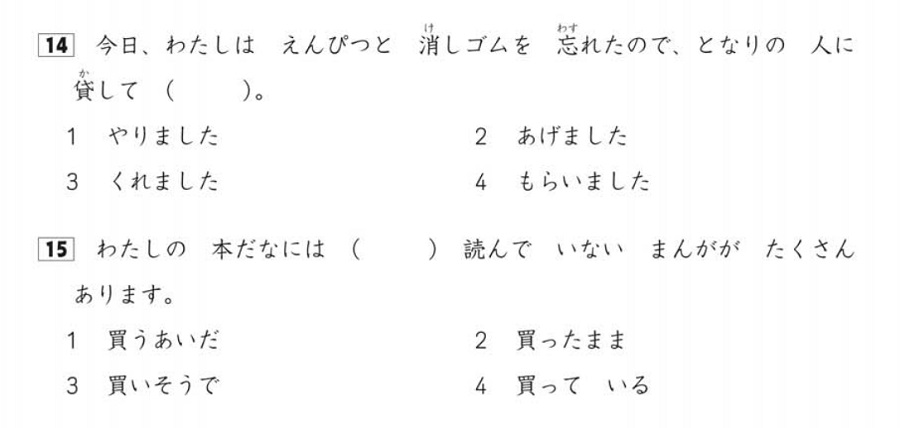 14 今日、わたしは えんぴつと 消しゴムを 忘れたので、となりの 人に
貸して ( )。
1 やりました 2 あげました
3 くれました 4 もらいました
15 わたしの 本だなには ( ) 読んで いない まんがが たくさん
あります。
1 買うあいだ 2 買ったまま
3 買いそうで 4 買って いる